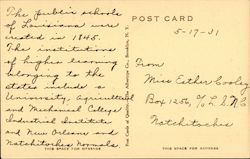 The public schools
of Louisiana were
created in 1845.
The institutions
of higher learning
belonging to the
states include a
University, Agricultural
and Mechanical College
Industrial Institute,
and New Orleans and
Natchitoches Normals.
THIS SPACE FOR MESSAGE
POST CARD
5-17-31
From
Miss Esther Cooley
Box 1256, % L.S.N.C
Natchitoches
THIS SPACE FOR ADDRESS